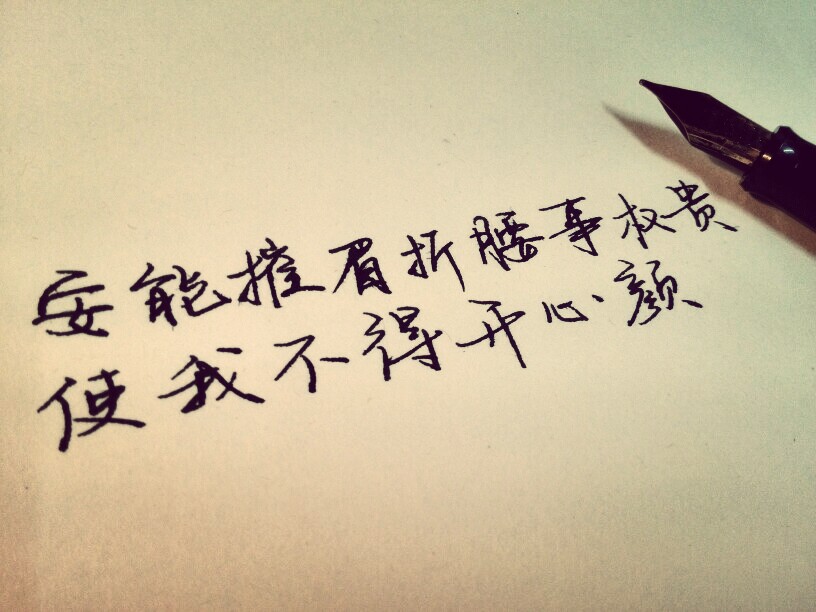 安能摧眉折腰事权贵
使我不得开心颜